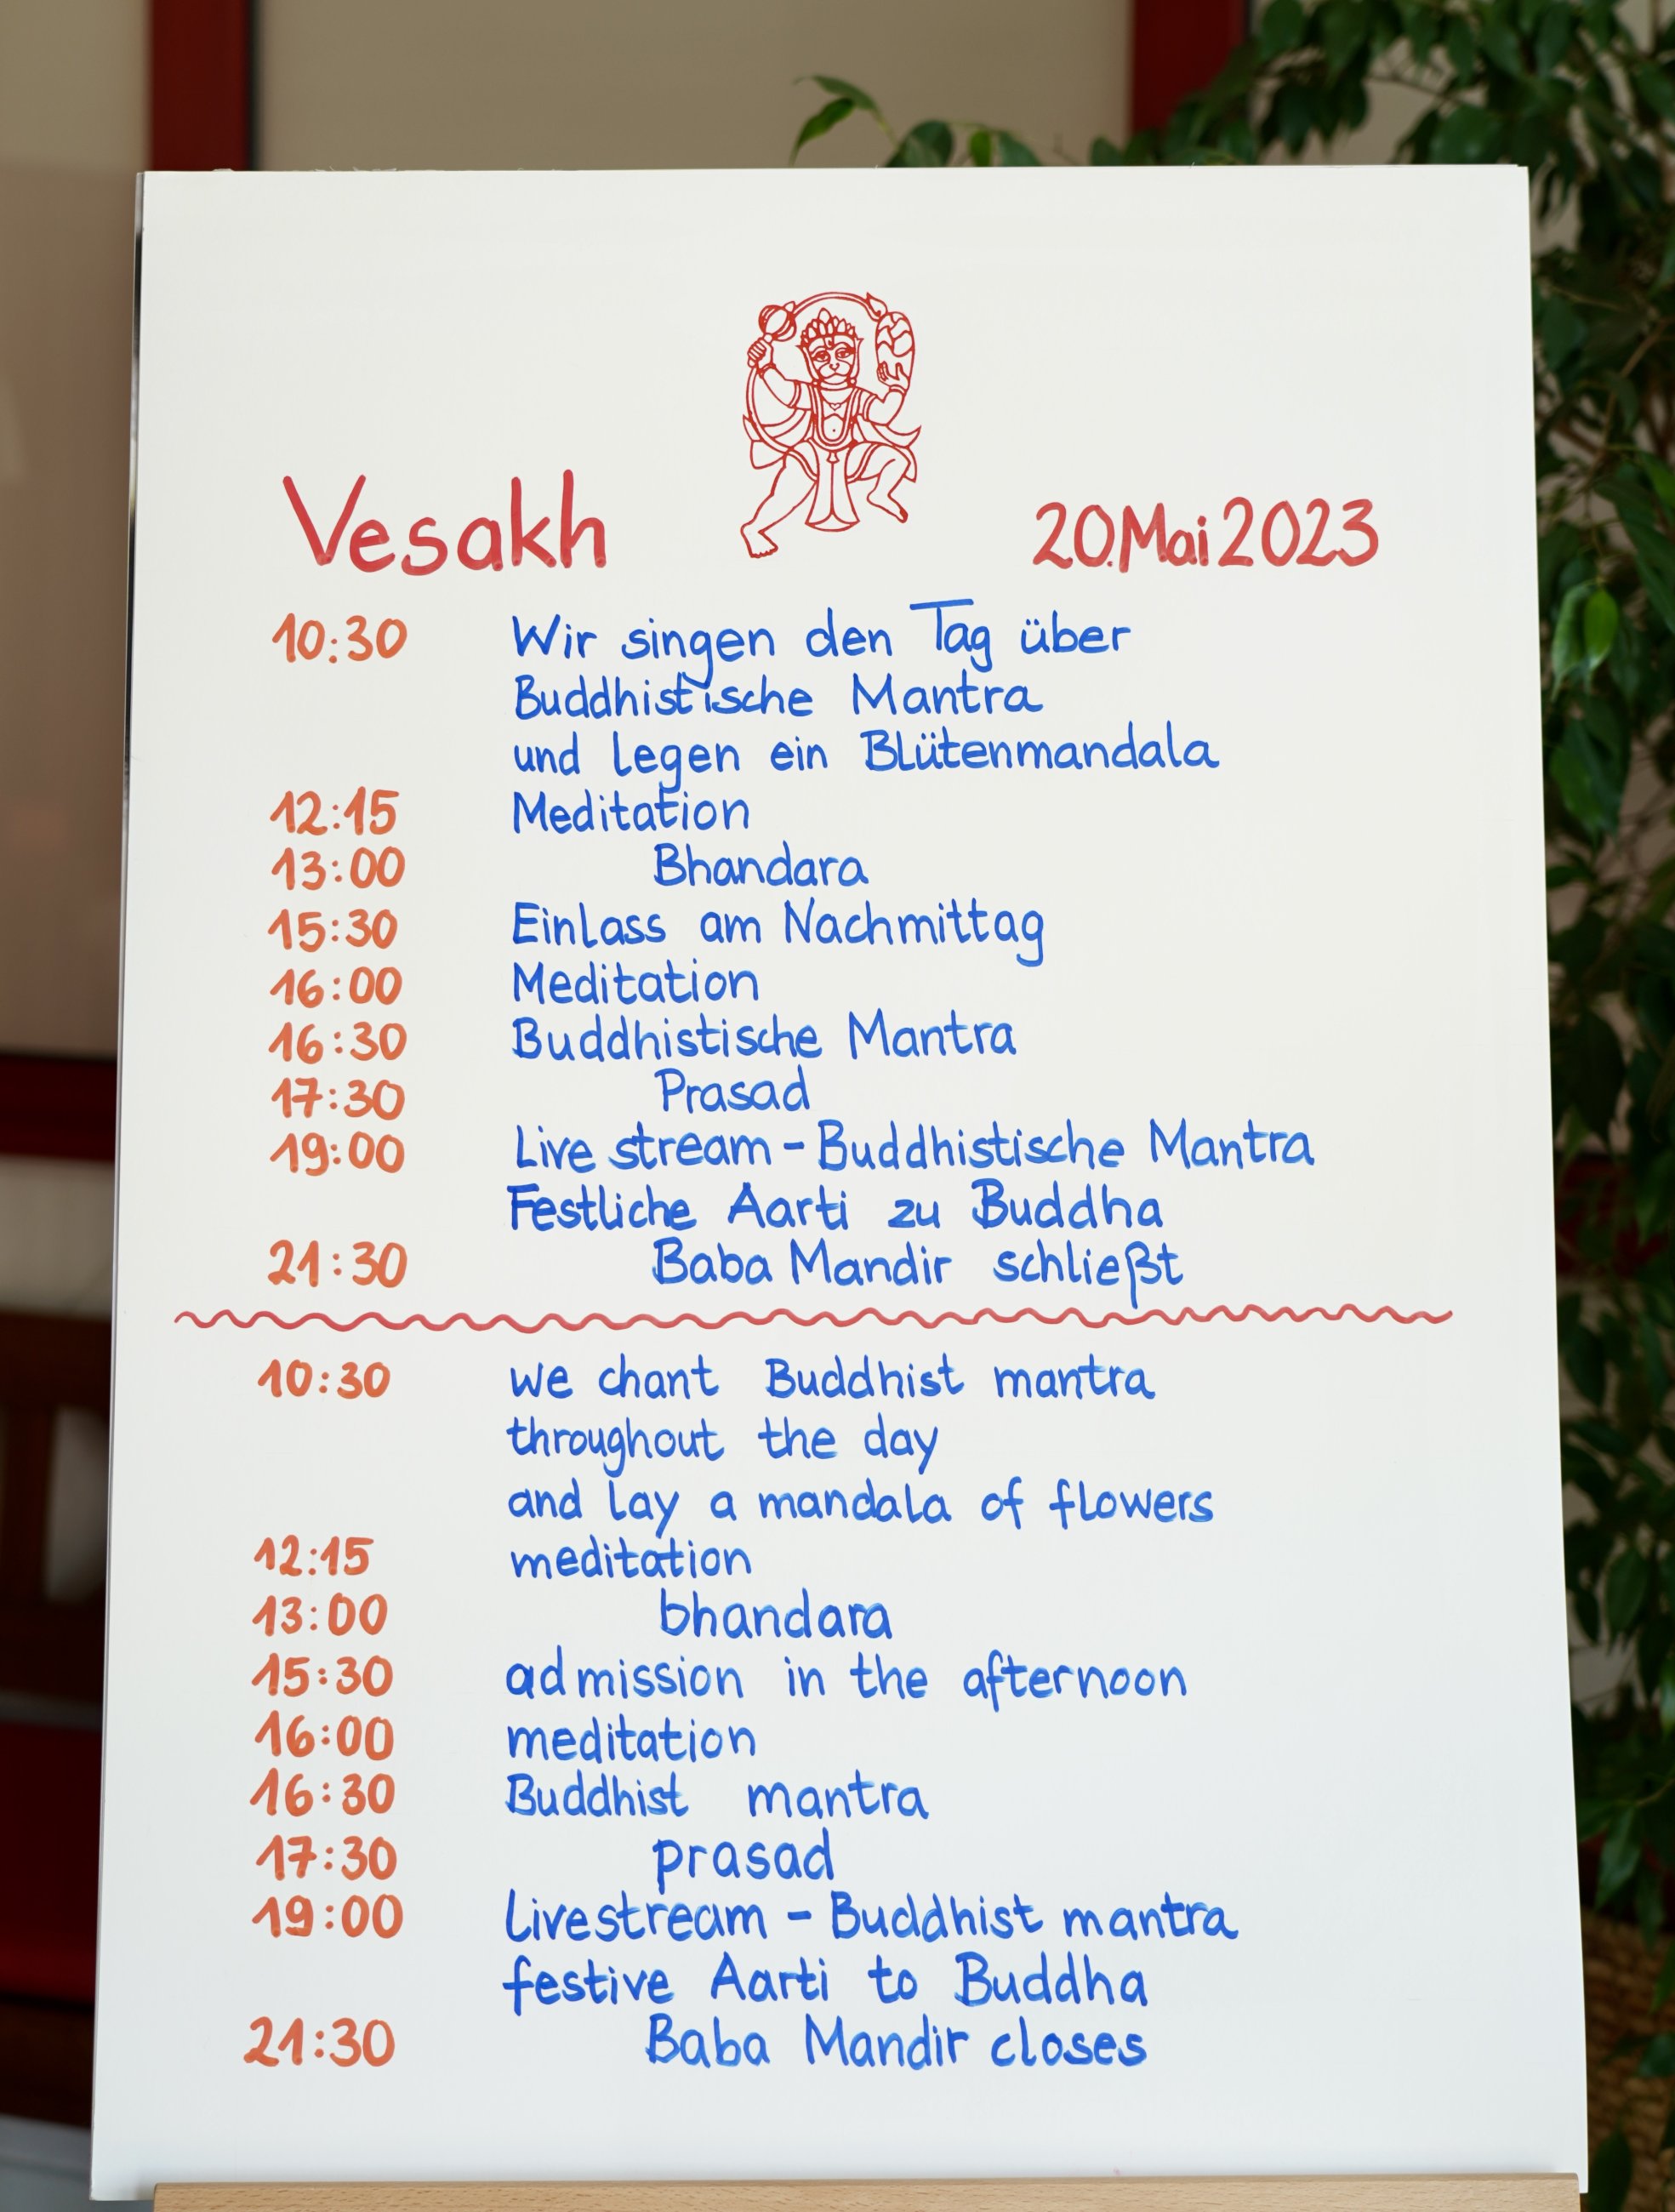 Vesakh 20.Mai 2023
10:30 Wir singen den Tag über
Buddhistische Mantra
und legen ein Blütenmandala
12:15 Meditation
13:00 Bhandara
15:30 Einlass am Nachmittag
16:00 Meditation
16:30 Buddhistische Mantra
17:30 Prasad
19:00 Live stream - Buddhistische Mantra
Festliche Aarti zu Buddha
21:30 Baba Mandir schließt
10:30 we chant Buddhist mantra
throughout the day
and lay a mandala of flowers
12:15 meditation
13:00 bhandara
15:30 admission in the afternoon
16:00 meditation
16:30 Buddhist mantra
17:30 prasad
19:00 Livestream - Buddhist mantra
festive Aarti to Buddha
21:30 Baba Mandir closes